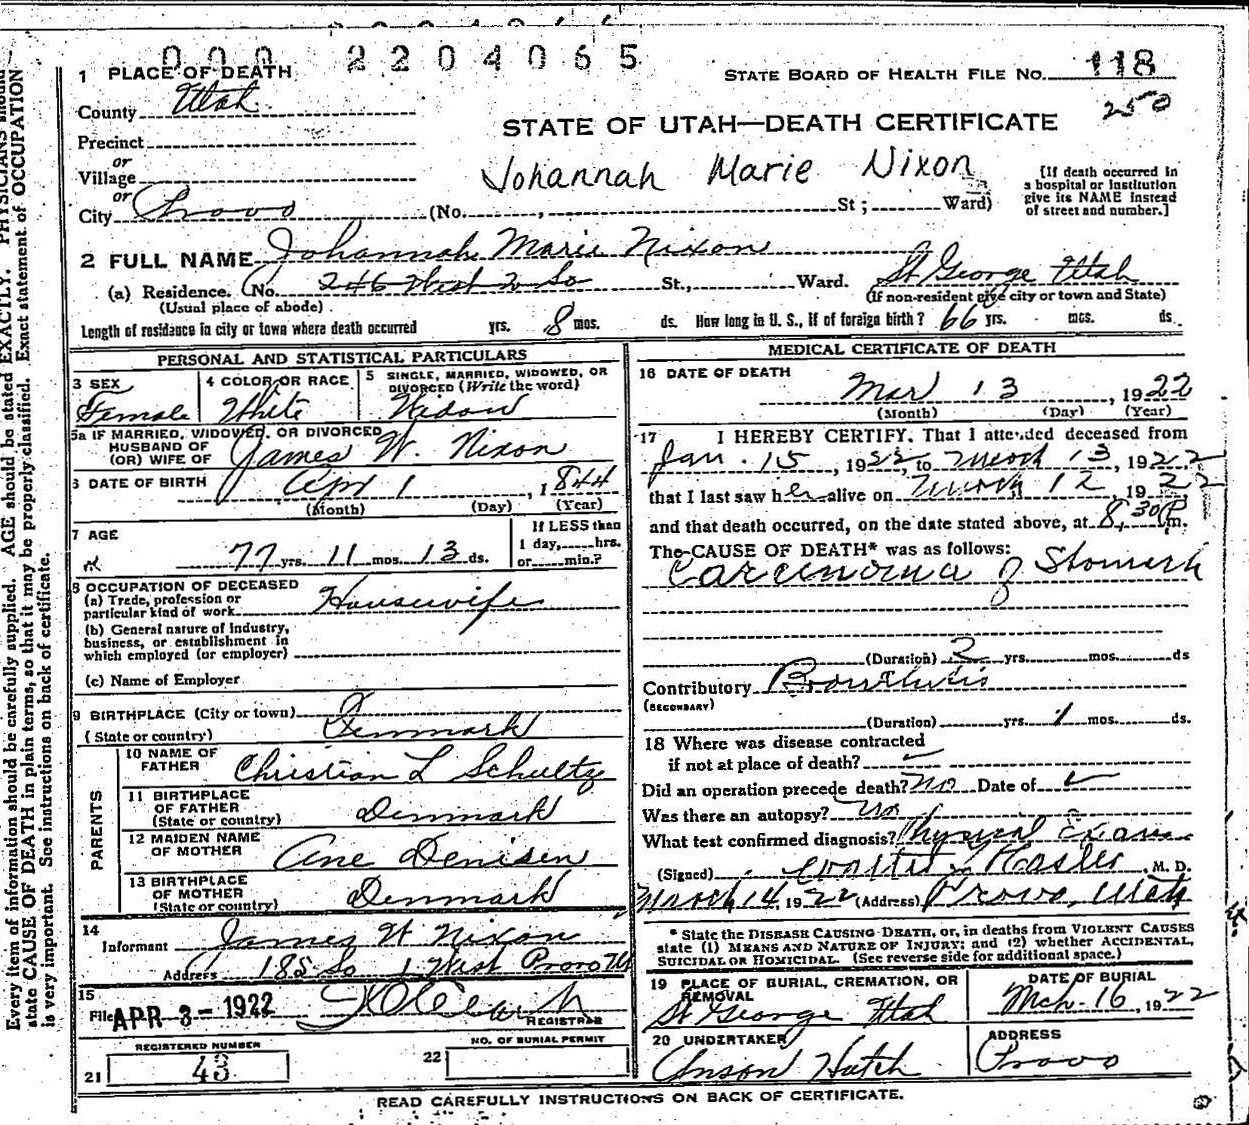 000 2204065
1 PLACE OF DEATH
STATE BOARD OF HEALTH FILE NO. 118
County Utah
250
STATE OF UTAH—DEATH CERTIFICATE
Precinct
or
Village
Johannah Marie Nixon
or
City Provo (No. , St; Ward)
[If death occurred in
a hospital or institution
give its NAME instead
of street and number.]
2 FULL NAME Johannah Marie Nixon
(a) Residence. (No. 246 West 2 So St., Ward. St George Utah
(Usual place of abode) (If non-resident give city or town and State)
Length of residence in city or town where death occurred yrs. 8 mos. ds. How long in U. S., if of foreign birth? 66 yrs. mos. ds.
PERSONAL AND STATISTICAL PARTICULARS
3 SEX Female
4 COLOR OR RACE White
5 SINGLE, MARRIED, WIDOWED, OR
DIVORCED (Write the word)
Widow
5a IF MARRIED, WIDOWED, OR DIVORCED
HUSBAND OF
(OR) WIFE OF James W. Nixon
6 DATE OF BIRTH Apr 1, 1844
(Month) (Day) (Year)
7 AGE
77 yrs. 11 mos. 13 ds.
If LESS than
1 day, hrs.
or min.?
8 OCCUPATION OF DECEASED
(a) Trade, profession or
particular kind of work Housewife
(b) General nature of industry,
business, or establishment in
which employed (or employer)
(c) Name of Employer
9 BIRTHPLACE (City or town)
(State or country) Denmark
PARENTS
10 NAME OF
FATHER Christian L Schultz
11 BIRTHPLACE
OF FATHER
(State or country) Denmark
12 MAIDEN NAME
OF MOTHER Ane Denisen
13 BIRTHPLACE
OF MOTHER
(State or country) Denmark
14
Informant James W Nixon
Address 185 So 1 West Provo Ut
15
File APR 3- 1922
REGISTRAR
REGISTERED NUMBER
21 43
NO. OF BURIAL PERMIT
22
MEDICAL CERTIFICATE OF DEATH
16 DATE OF DEATH
Mar 13, 1922
(Month) (Day) (Year)
17 I HEREBY CERTIFY, That I attended deceased from
Jan. 15, 1922, to March 13, 1922
that I last saw her alive on March 12, 1922
and that death occurred, on the date stated above, at 8:30 P.m.
The CAUSE OF DEATH* was as follows:
Carcinoma of Stomach
(Duration) 2 yrs. mos. ds
Contributory Bronchitis
(SECONDARY)
(Duration) yrs. 1 mos. ds.
18 Where was disease contracted
if not at place of death?
Did an operation precede death? No Date of
Was there an autopsy? No
What test confirmed diagnosis? Physical Exam
(Signed) Walter T Hasler, M. D.
March 14, 1922 (Address) Provo, Utah
* State the DISEASE CAUSING DEATH, or, in deaths from VIOLENT CAUSES
state (1) MEANS AND NATURE OF INJURY; and (2) whether ACCIDENTAL,
SUICIDAL OR HOMICIDAL. (See reverse side for additional space.)
19 PLACE OF BURIAL, CREMATION, OR
REMOVAL
St George Utah
DATE OF BURIAL
Mch-16, 1922
20 UNDERTAKER
Anson Hatch
ADDRESS
Provo
READ CAREFULLY INSTRUCTIONS ON BACK OF CERTIFICATE.
Every item of information should be carefully supplied. AGE should be stated EXACTLY. PHYSICIANS should
state CAUSE OF DEATH in plain terms, so that it may be properly classified. Exact statement of OCCUPATION
is very important. See instructions on back of certificate.